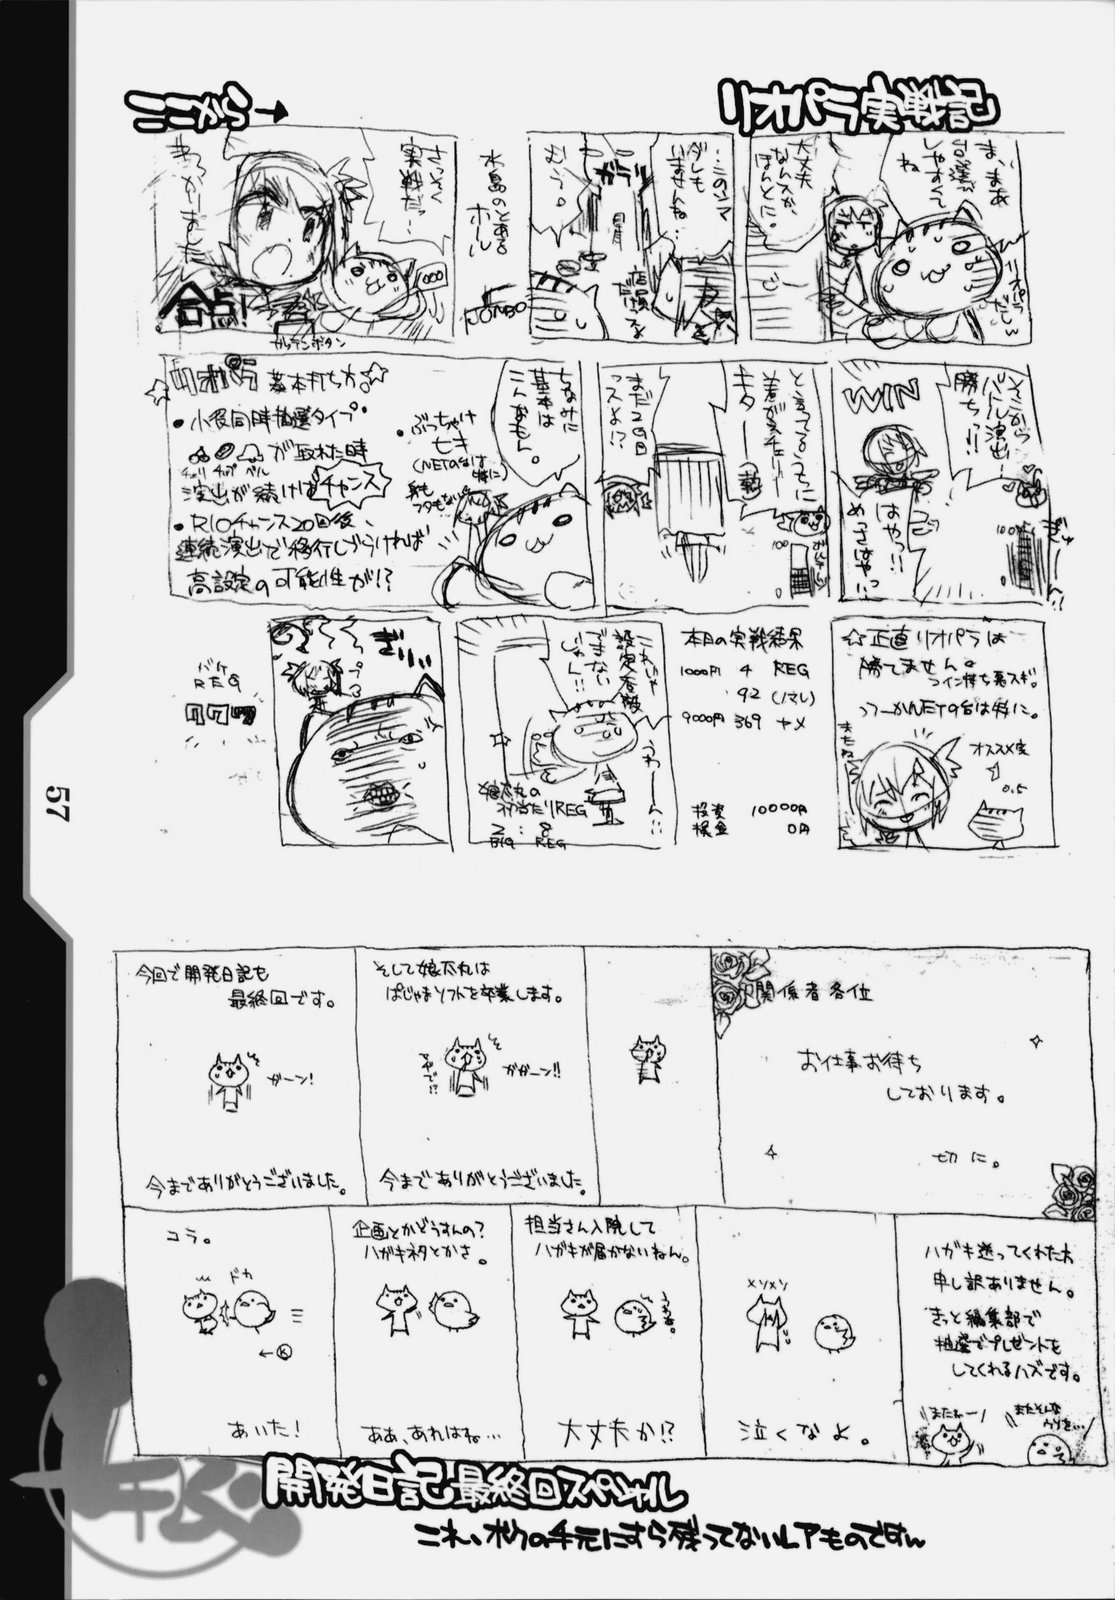 リオパラ実戦記
ま、まあ
しやすくて
ね
リオパラ
だしw
大丈夫
なんスか、
ほんとに。
…このシマ
ダレも
いませんね…
ガラ
店員
だ
むう。
水島のとある
ホール
さっそく
実戦だっ…
合点!
ガッテンボタン
そこから
バトル演出!
勝ちっ!!
WIN
はやっ!!
めっさはやっ!!
と言ってるうちに
キター
まだ2G目
っスよ!?
ちなみに
基本は
こんなもん。
リオパラ基本打ち方。
・小役同時抽選タイプ・
が取れた時
チェリ チャプ ベル
演出が続けばチャンス
・RIOチャンス20回後、
連続演出で移行しづらければ
高設定の可能性が!?
・ぶっちゃけ
七キ
(NETの台は
特に)
☆正直リオパラは
勝てません。
コイン持ち悪スギ。
つーかNETの台は特に。
オススメ度
0.5
またね
本日の実戦結果
1000円 4 REG
92 (ノマレ)
9000円 369 ヤメ
投資 10000円
換金 0円
これじゃ
設定看破
できない
じゃん!!
うわーーん!!
娘太丸の
初当たりREG
2:8
BIG REG
ぎりり
プ
バケ
REG
関係者各位
お仕事お待ち
しております。
切に。
そして娘太丸は
ぱじゃまソフトを卒業します。
ガガーン!!
今までありがとうございました。
今回で開発日記も
最終回です。
ガーン!
今までありがとうございました。
コラ。
ドカ
←K
あいた!
企画とかどうすんの?
ハガキネタとかさ。
ああ、あれはね…
担当さん入院して
ハガキが届かないねん。
うるる。
大丈夫か!?
メソメソ
泣くなよ。
ハガキ送ってくれた方
申し訳ありません。
きっと編集部で
抽選でプレゼントを
してくれるハズです。
またねー/
またそんな
ウソを…
開発日記最終回スペシャル
これ、ボクの手元にすら残ってないレアものですん
57